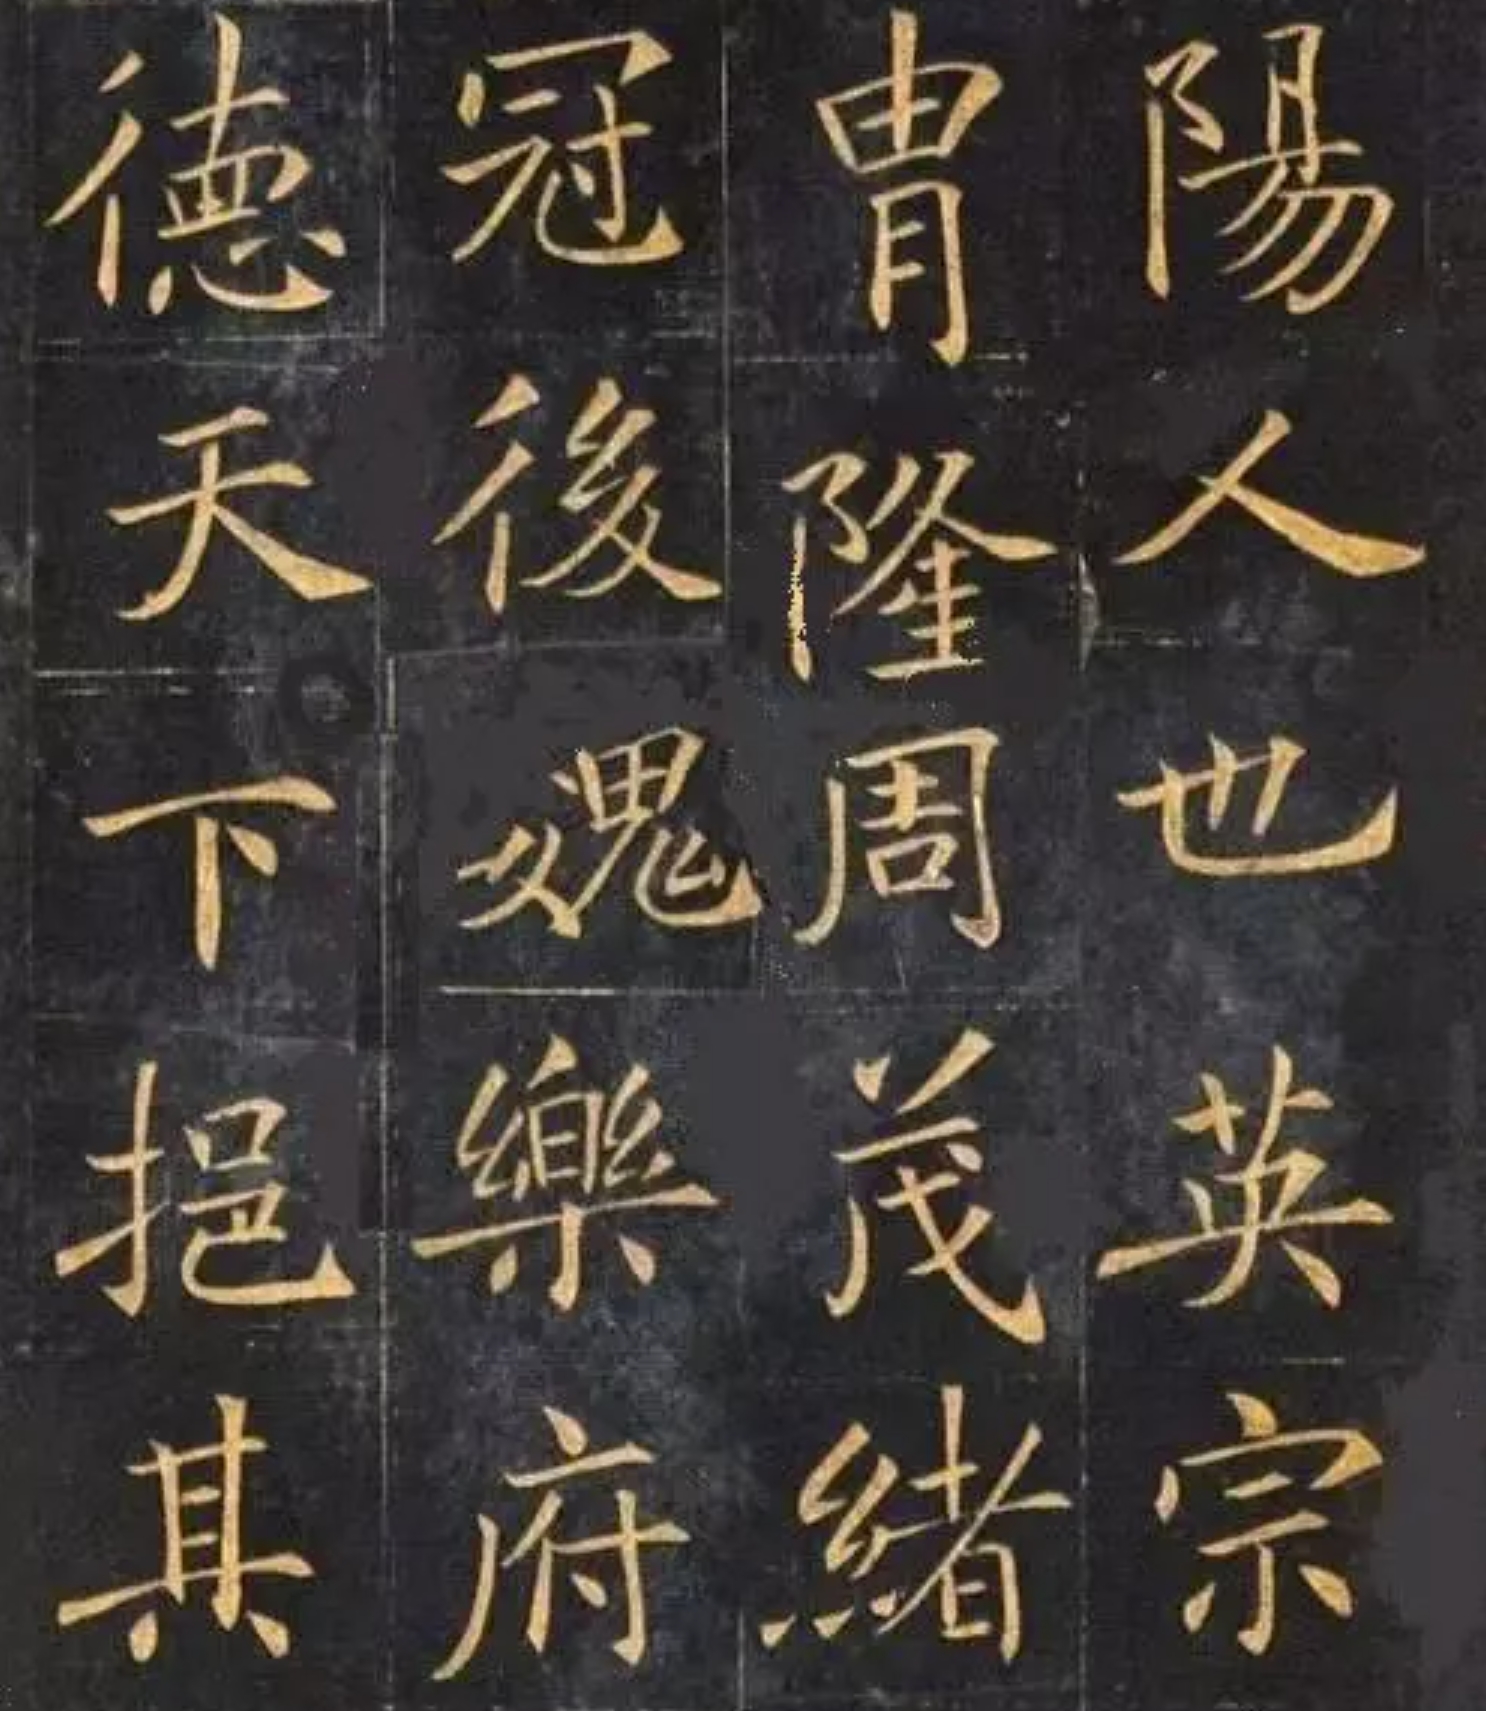 陽人也英宗
冑隆周茂緒
冠後魏樂府
德天下挹其